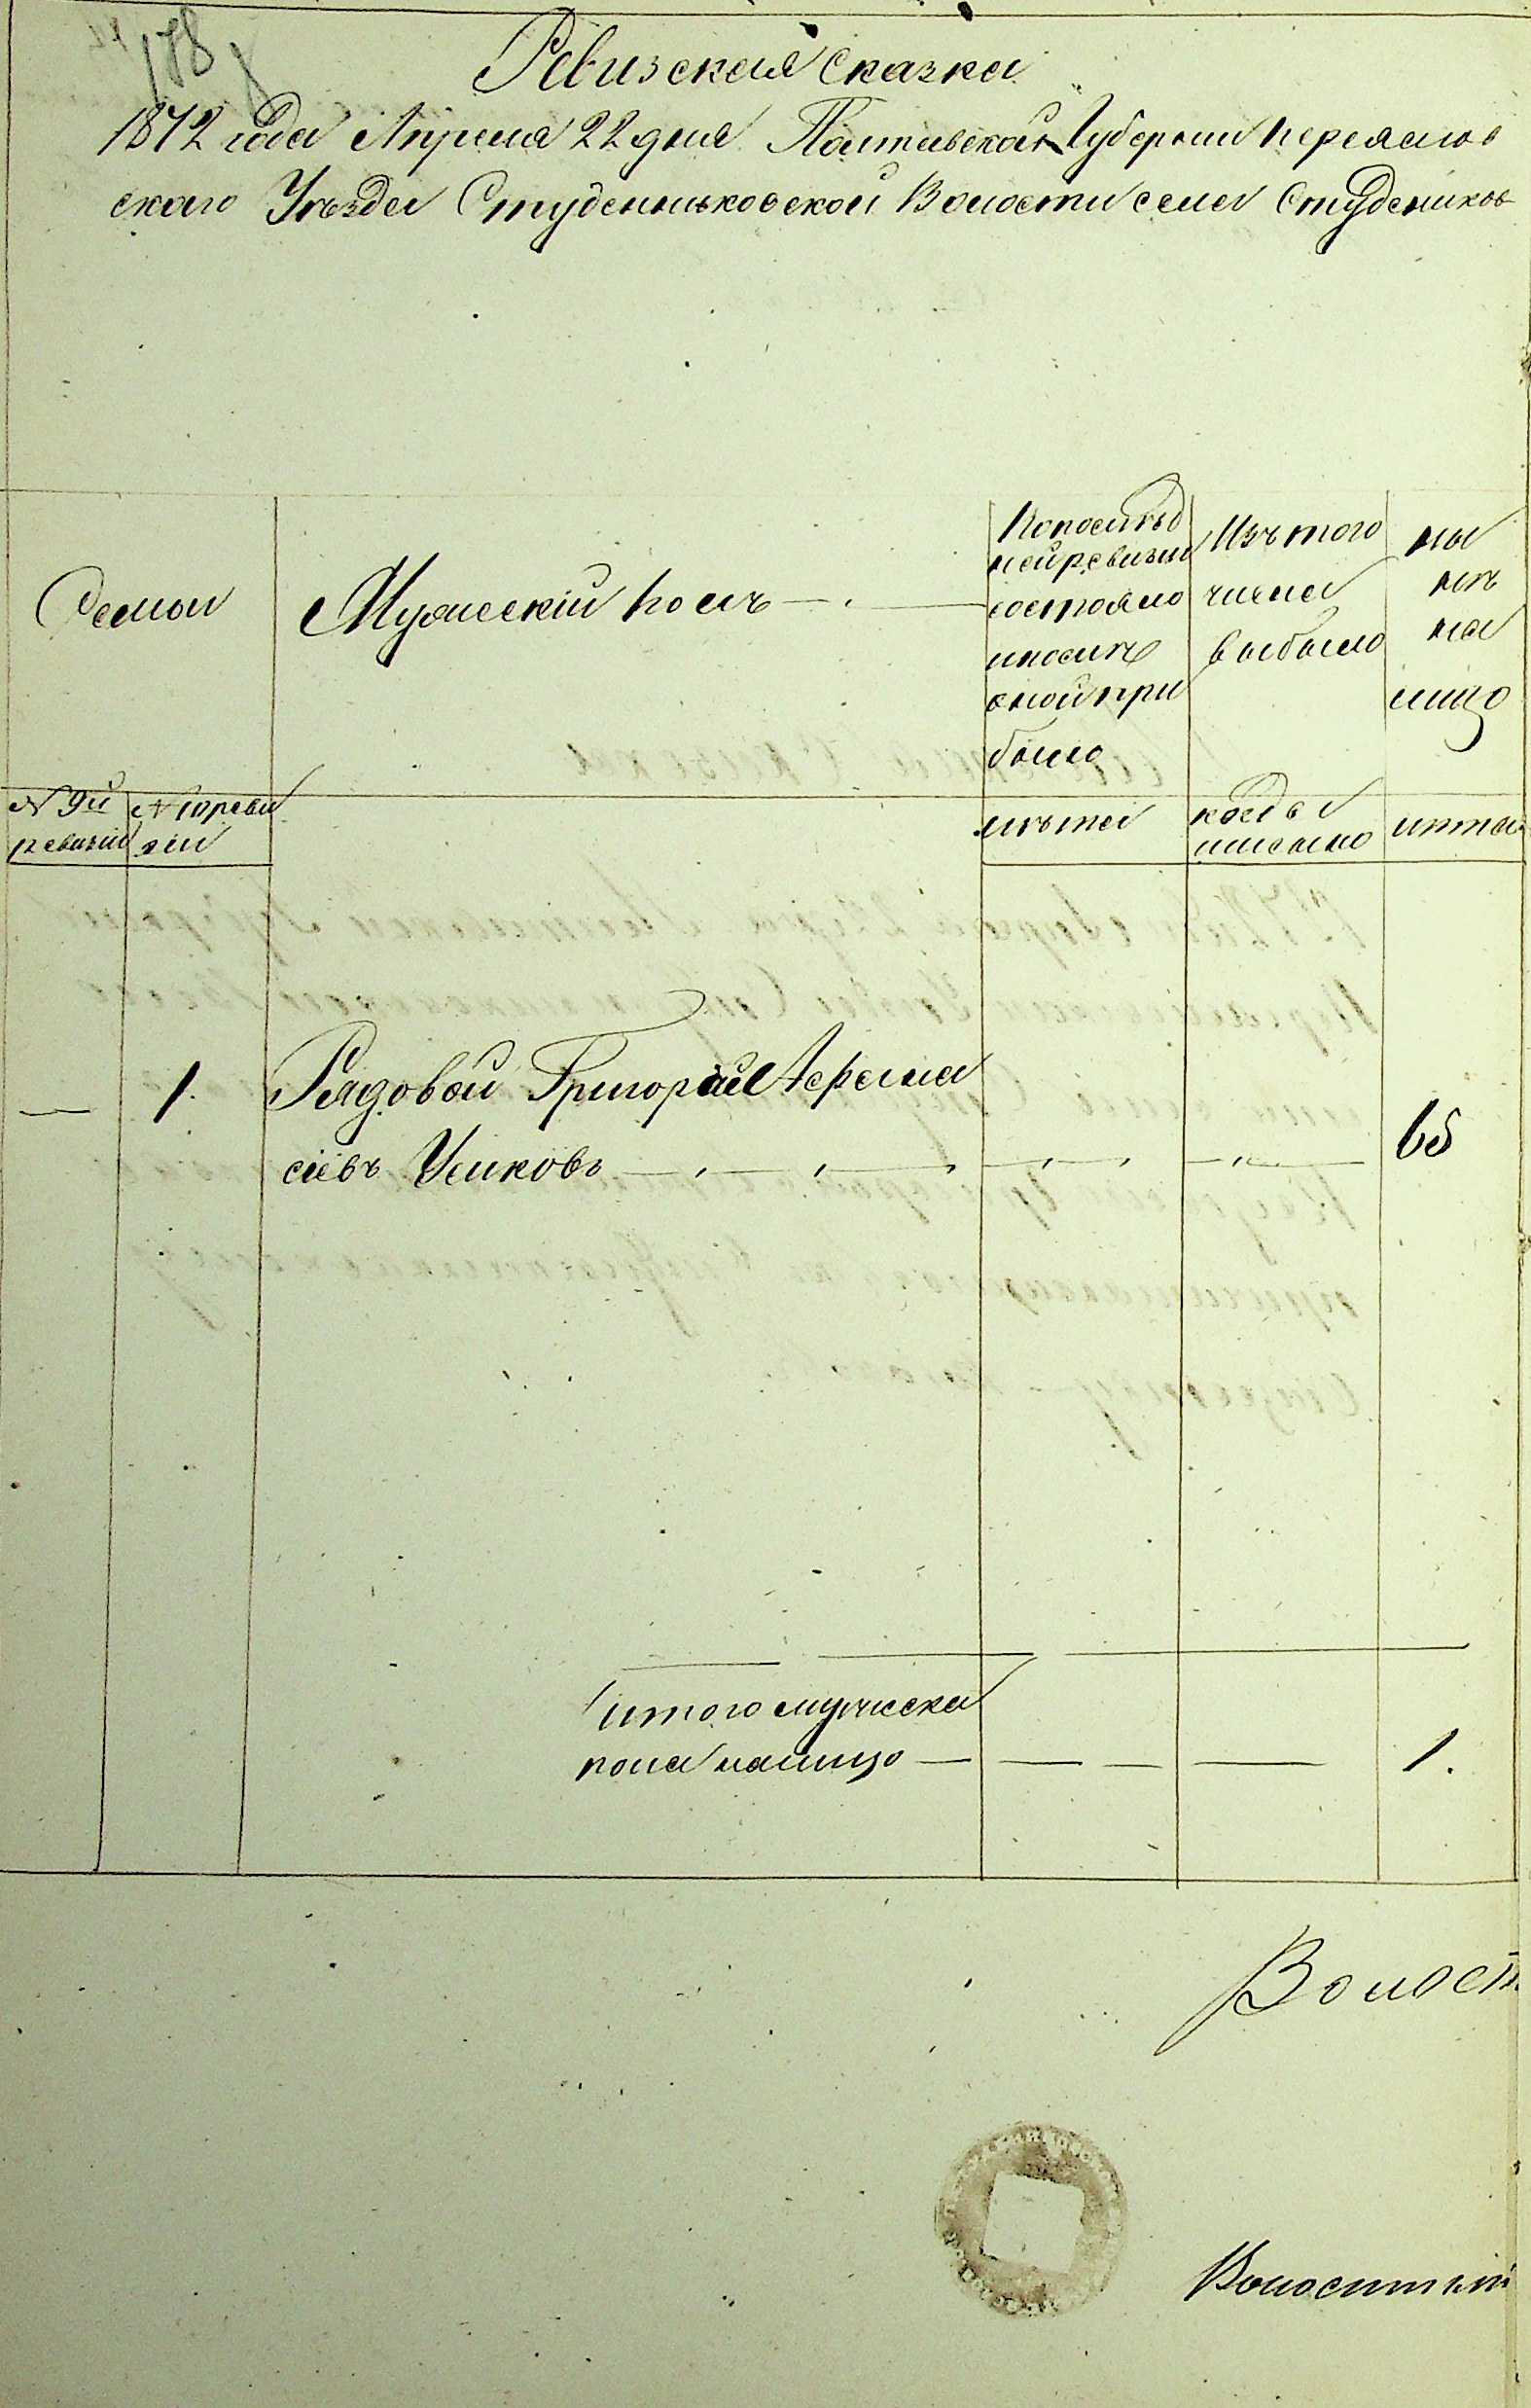 178
Ревизская Сказка
1872 года Апреля 22 дня Полтавской Губернии Переяслов
скаго Уѣзда Студеньиковской Волости села Студеников
Семьи
Мужескій полъ
По послѣд
ней ревизіи
состояло
и послѣ
оной при
было
Изъ того
числа
выбыло
ны
нѣ
на
лицо
№ 9й
ревизіи
№ 10 реви
зіи
лѣта
когда
именно
лѣта
— 1. Рядовой Григорій Афана
сіевъ Усиковъ
65
Итого мужеска
пола налицо — 1.
Волост
Волостный